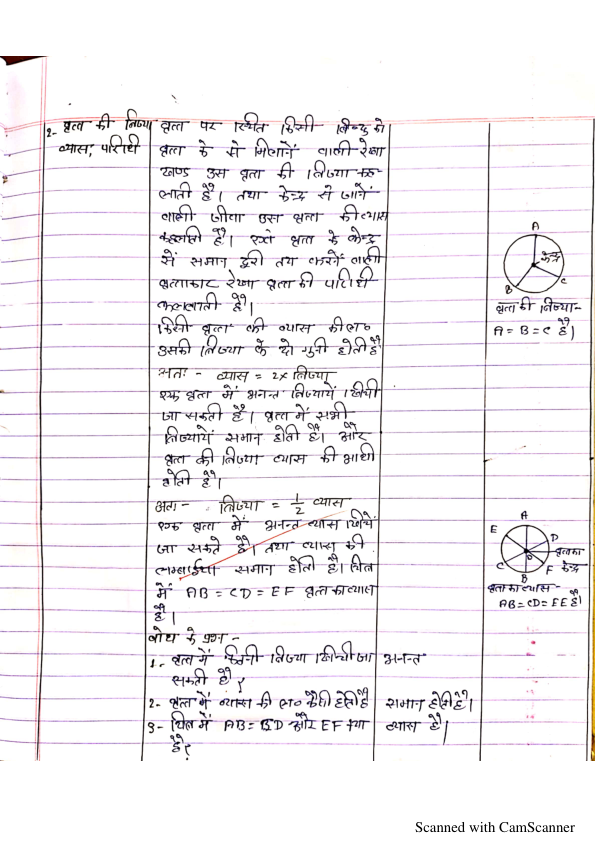 2- वृत्त की त्रिज्या
व्यास, परिधी
वृत्त पर स्थित किसी बिन्दु को
वृत्त के से मिलाने वाली रेखा
खण्ड उस वृत्त की त्रिज्या कह-
लाती है। तथा केन्द्र से जाने
वाली जीवा उस वृत्त की व्यास
कहलाती है। एवं वृत्त के केन्द्र
से समान दूरी तय करने वाली
वृत्ताकार रेखा वृत्त की परिधी
कहलाती है।
किसी वृत्त की व्यास की ल०
उसकी त्रिज्या के दो गुनी होती है
अतः - व्यास = 2x त्रिज्या
एक वृत्त में अनन्त त्रिज्यायें खींची
जा सकती है। वृत्त में सभी
त्रिज्यायें समान होती है। और
वृत्त की त्रिज्या व्यास की आधी
होती है।
अतः - त्रिज्या = 1/2 व्यास
एक वृत्त में अनन्त व्यास खिंचें
जा सकते है। तथा व्यास की
लम्बाईयां समान होती है। चित्र
में AB = CD = EF वृत्त का व्यास
है।
बोध के प्रश्न -
1- वृत्त में कितनी त्रिज्या खिंची जा
सकती है?
अनन्त
2- वृत्त में व्यास की ल० कैसी होती है
समान होती है।
3- चित्र में AB = CD और EF क्या
है?
व्यास है।
A
केन्द्र
B
C
वृत्त की त्रिज्या-
A = B = C है।
A
E
D
O
वृत्त का
केन्द्र
C
F
B
वृत्त का व्यास -
AB = CD = EF है।
Scanned with CamScanner